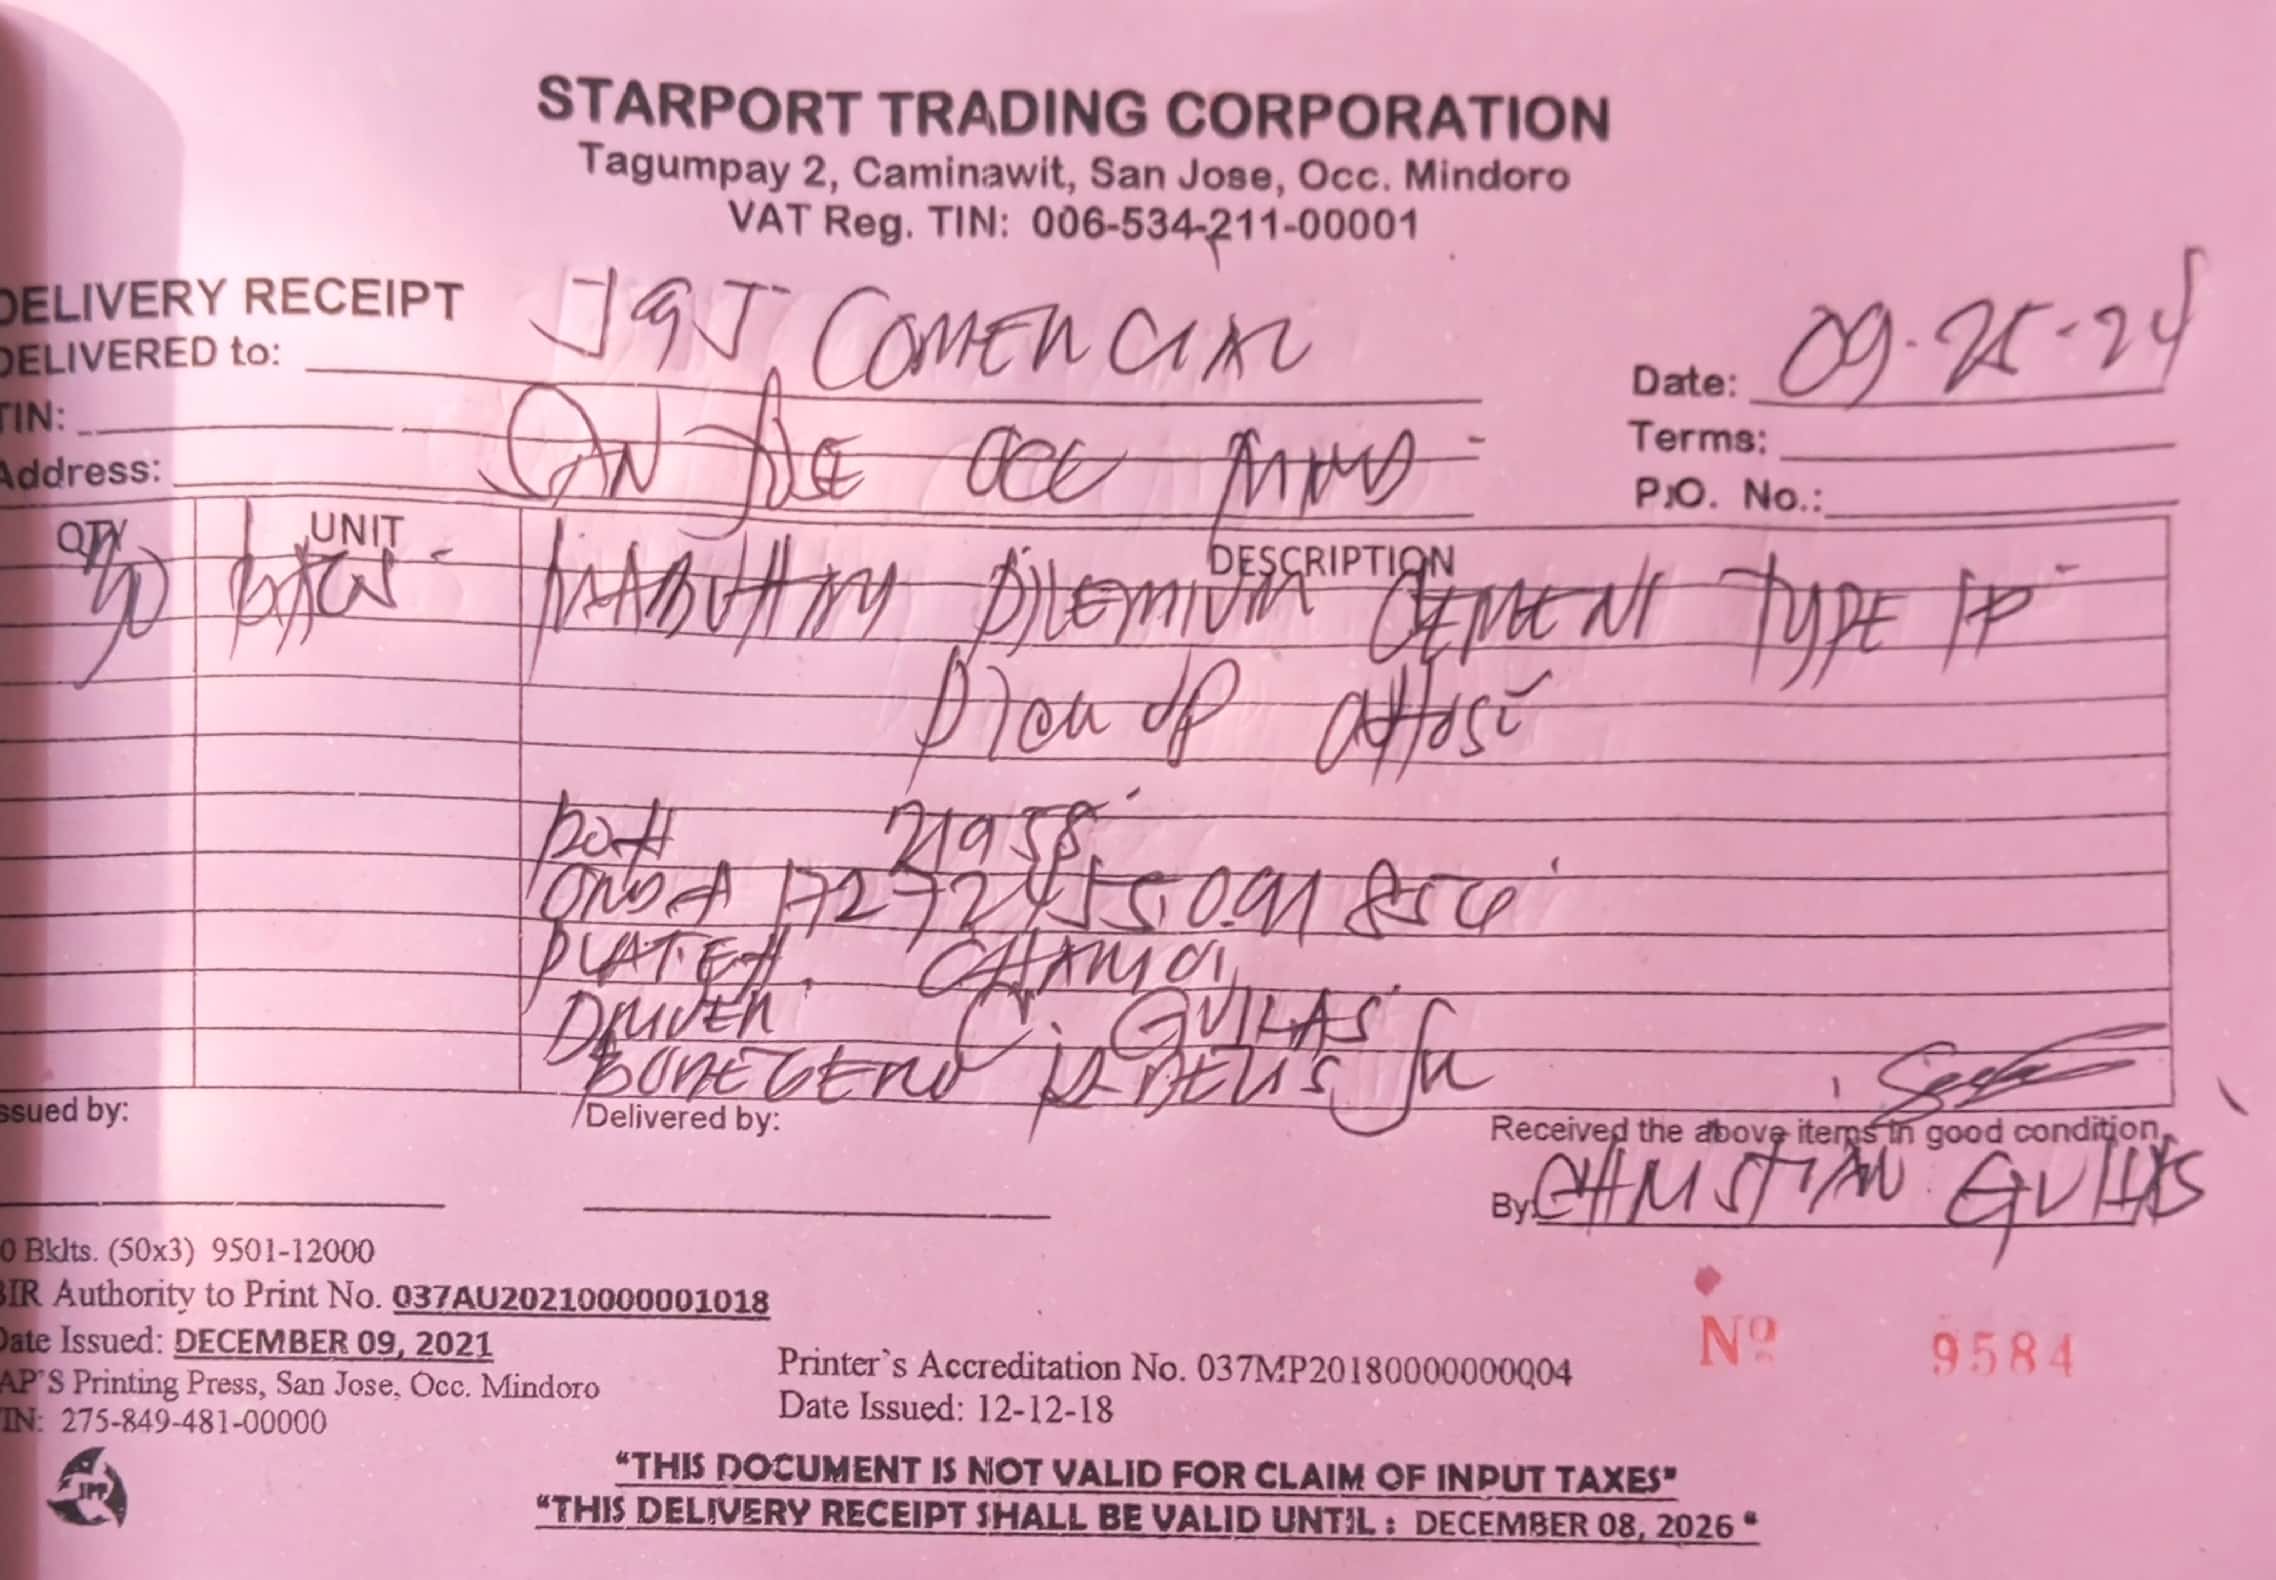 STARPORT TRADING CORPORATION
Tagumpay 2, Caminawit, San Jose, Occ. Mindoro
VAT Reg. TIN: 006-534-211-00001
DELIVERY RECEIPT
DELIVERED to: JGJ COMERCIAL
Date: 09-25-24
TIN:
Terms:
Address: SAN JOSE OCC MIND
P.O. No.:
QTY UNIT DESCRIPTION
BAGS PREMIUM CEMENT TYPE 1P
PICK UP
DO# 21958
PLATE#
DRIVER C. GUILAS
JR
Issued by:
Delivered by:
Received the above items in good condition
By: CHRISTIAN GUILAS
0 Bklts. (50x3) 9501-12000
BIR Authority to Print No. 037AU20210000001018
Date Issued: DECEMBER 09, 2021
AP'S Printing Press, San Jose, Occ. Mindoro
TIN: 275-849-481-00000
Printer's Accreditation No. 037MP20180000000004
Date Issued: 12-12-18
Nº 9584
JPP
"THIS DOCUMENT IS NOT VALID FOR CLAIM OF INPUT TAXES"
"THIS DELIVERY RECEIPT SHALL BE VALID UNTIL : DECEMBER 08, 2026 "